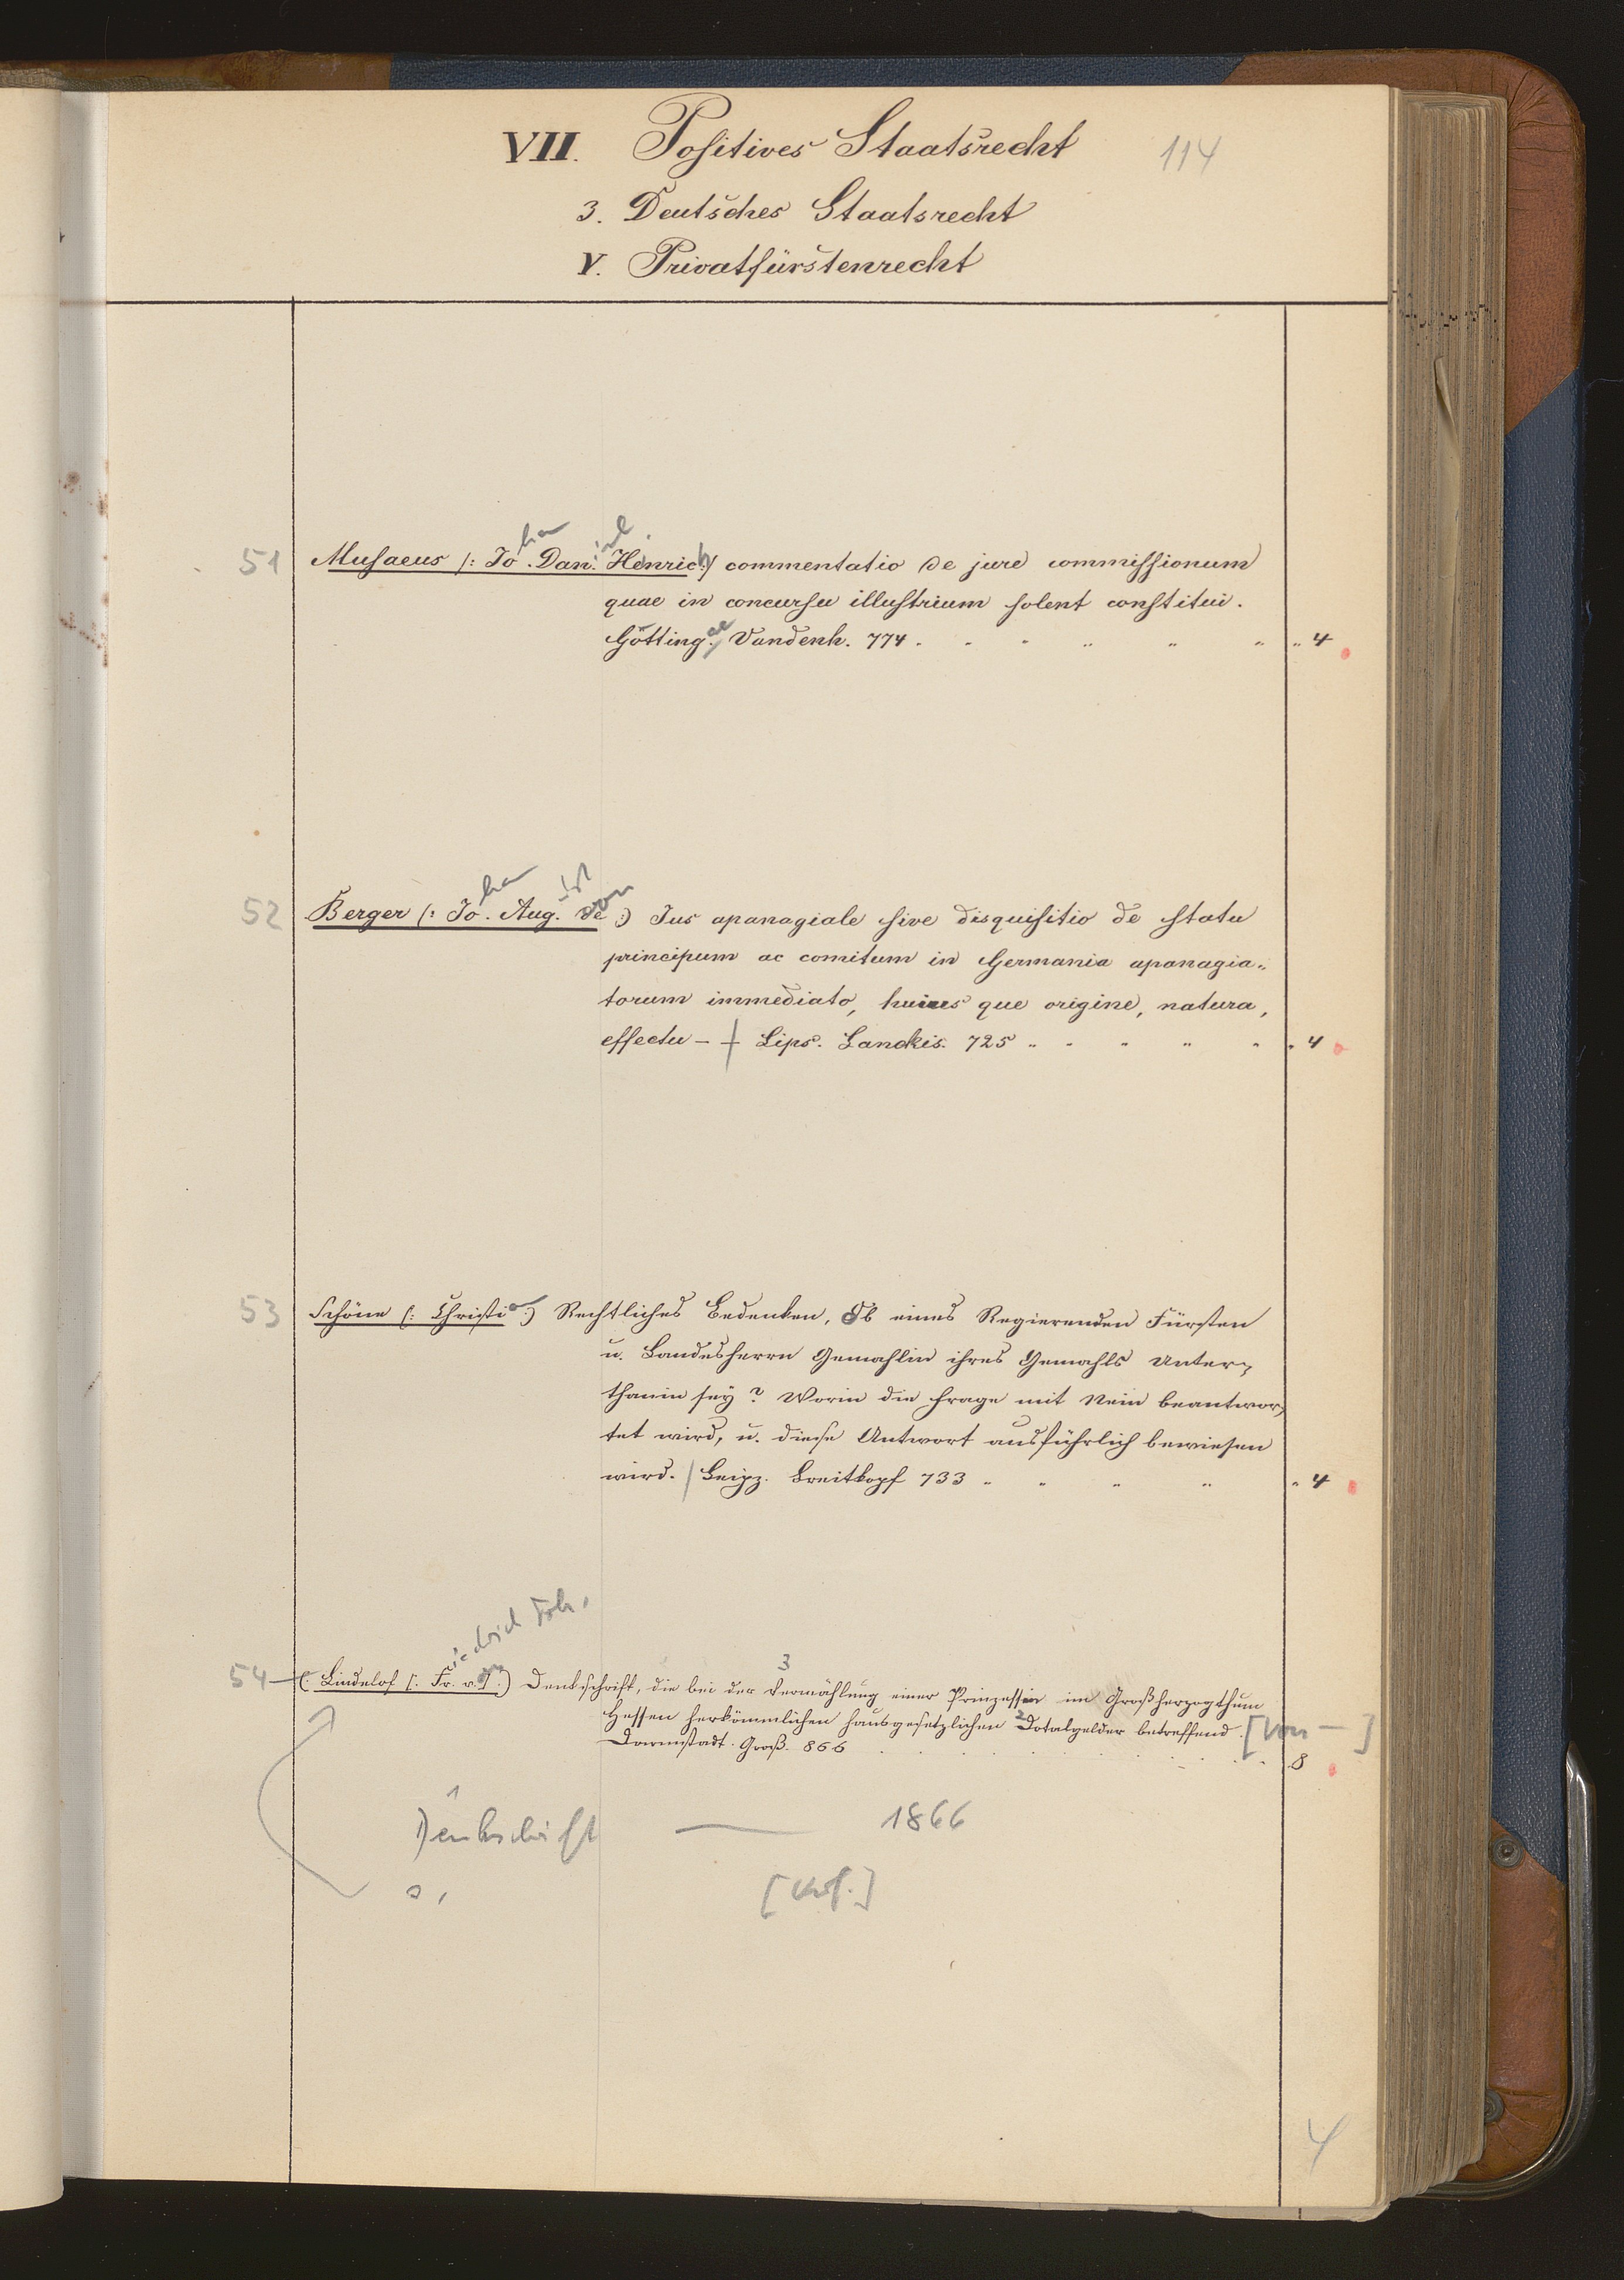 VII. Positives Staatsrecht 114
3. Deutsches Staatsrecht
V. Privatfürstenrecht
51 Musaeus /: Jo. Dan. Henric :/ commentatio de jure commissionum
quae in concursu illustrium solent constitui.
Götting. Vandenh. 774 . . . " " " " 4
52 Berger (: Jo. Aug. de :) Jus apanagiale sive disquisitio de statu
principum ac comitum in Germania apanagia„
torum immediato, huius que origine, natura,
effectu – Lips. Lanckis. 725 " " " " " " 4
53 Schöne (: Christi :) Rechtliches Bedenken, Ob eines Regierenden Fürsten
u. Landesherrn Gemahlin ihres Gemahls Unter„
thanin sey? Worin die Frage mit Nein beantwor„
tet wird, u. diese Antwort ausführlich bewiesen
wird. / Leipz. Breitkopf 733 " " " " " 4
iedrich Frh.
3
54 (: Lindelof (: Fr. v. :) Denkschrift, die bei der Vermählung einer Prinzessin im Großherzogthum
Hessen herkömmlichen hausgesetzlichen Dotalgelder betreffend. [von — ]
Darmstadt. Groß. 866 . . . . . . . . 8
1
Denkschrift — 1866
[Verf.]
4